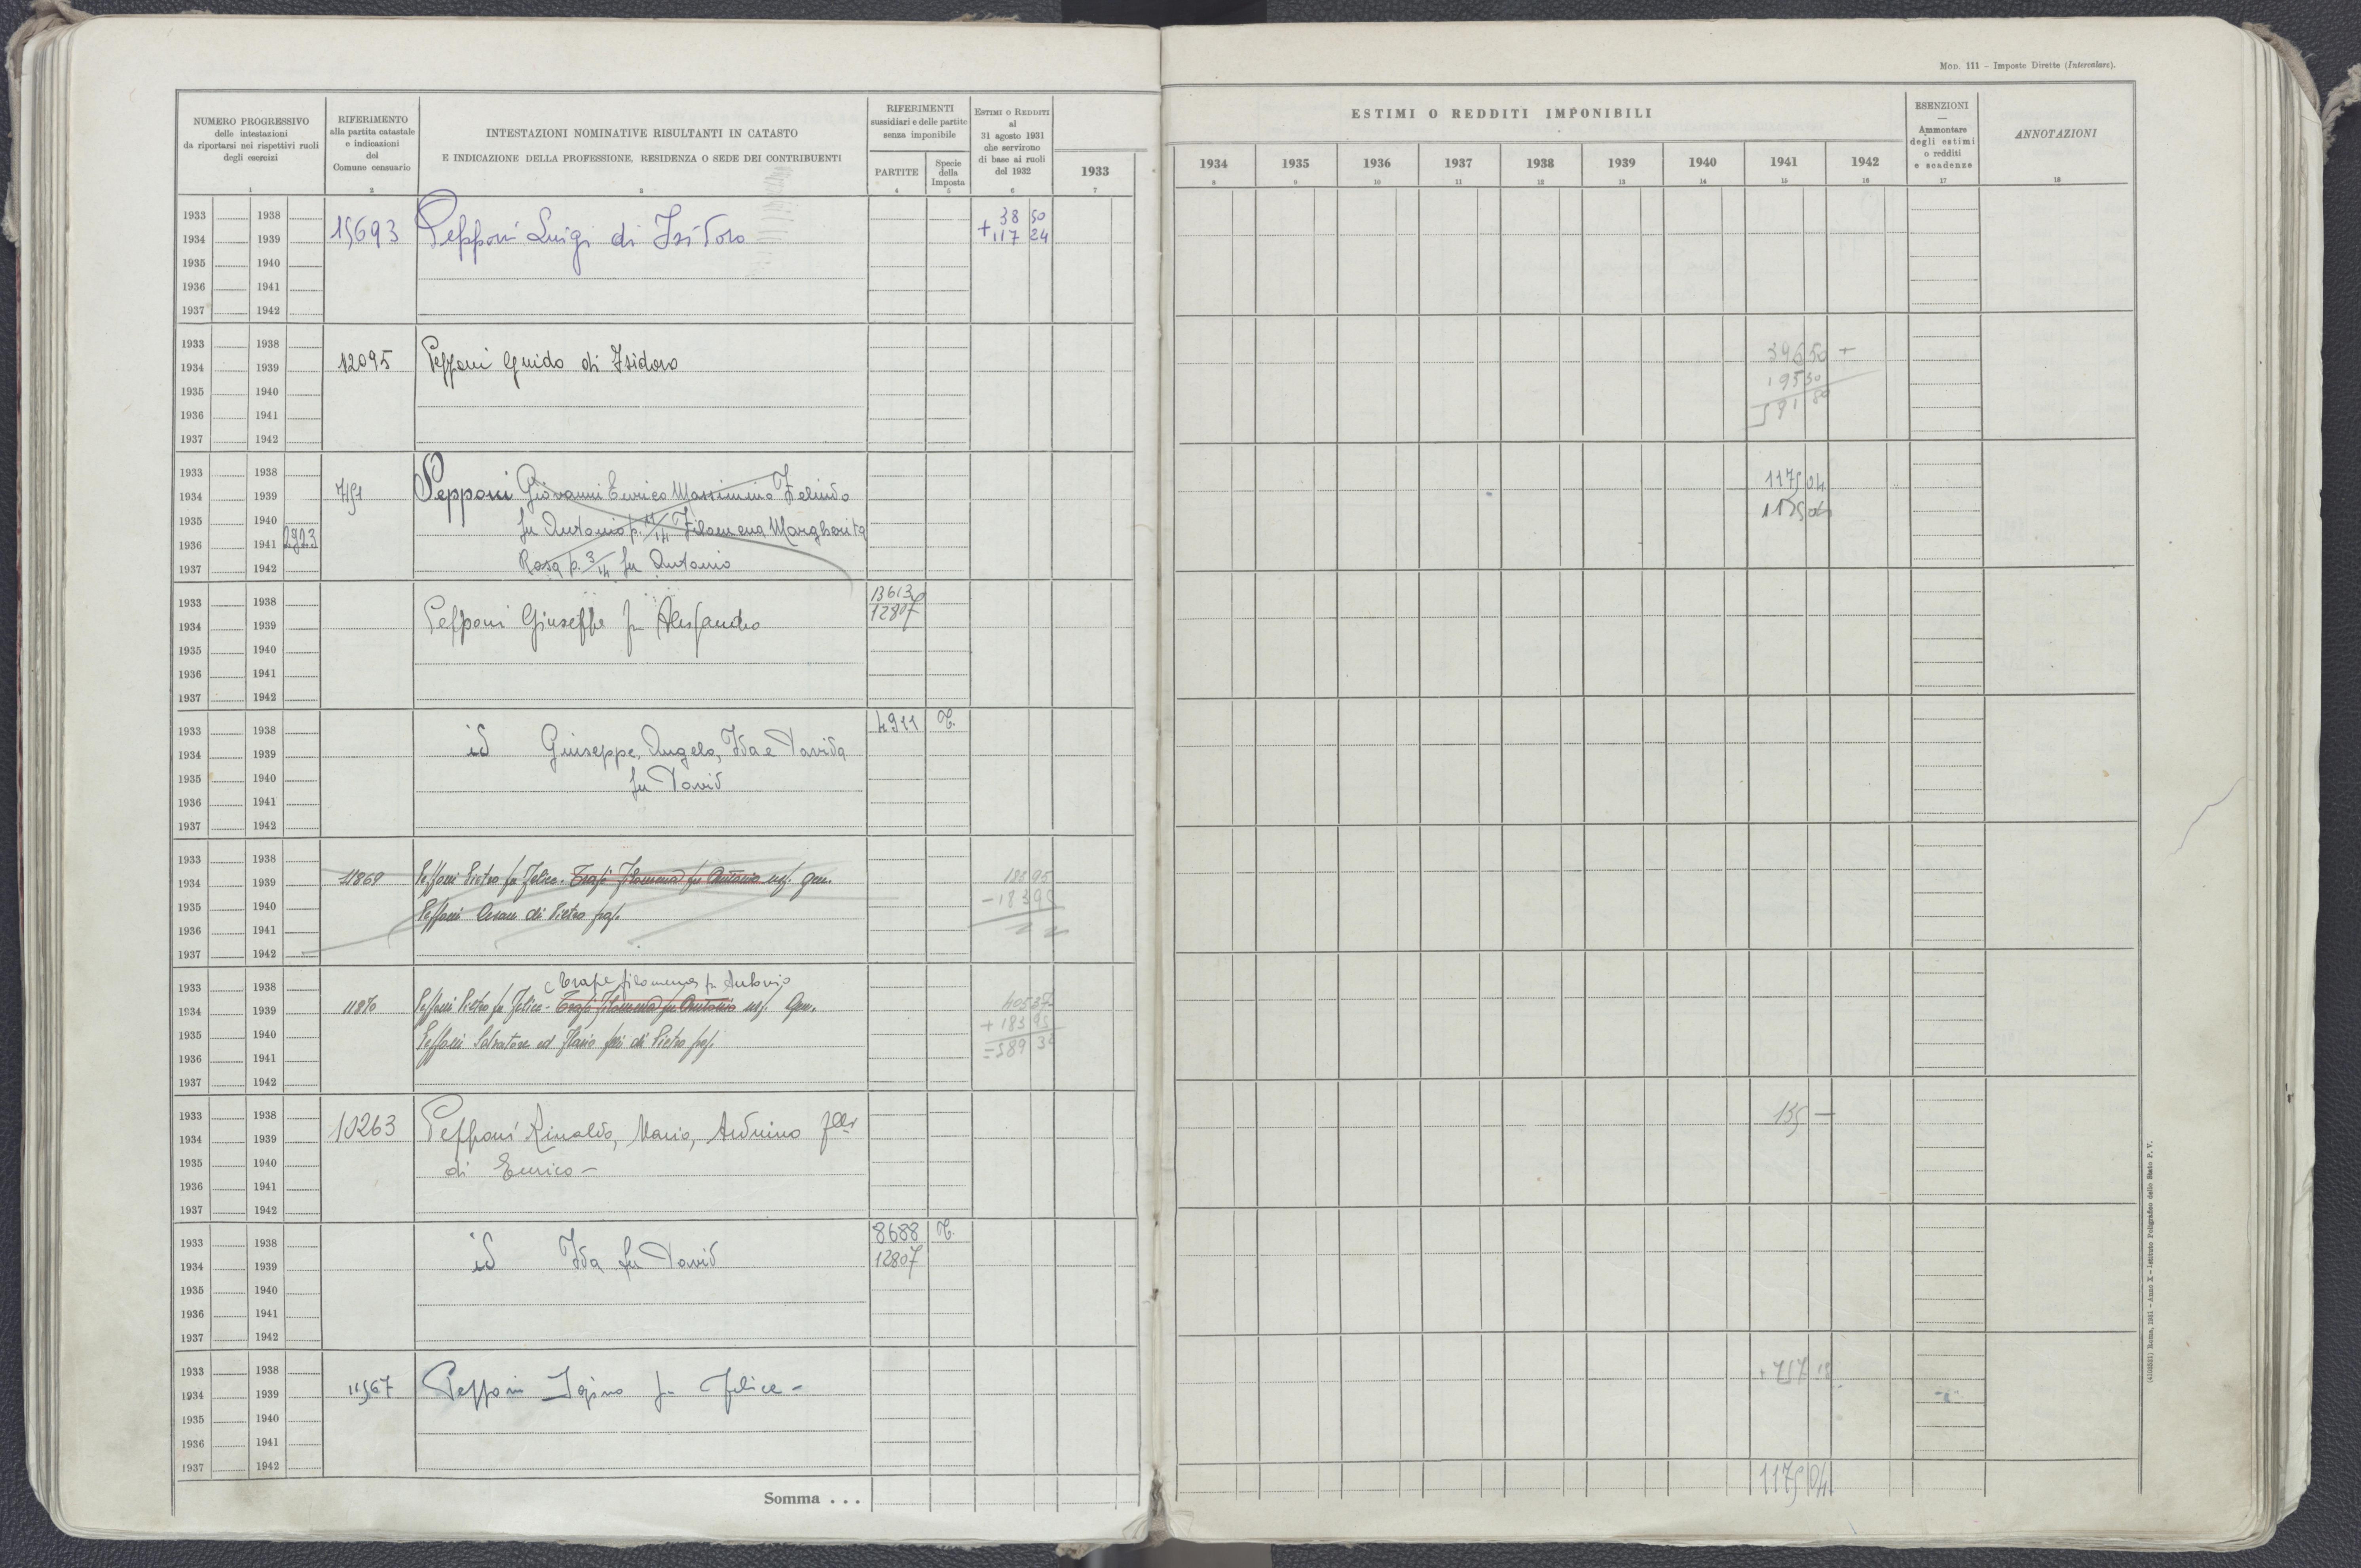 MOD. 111 - Imposte Dirette (Intercalare).
NUMERO PROGRESSIVO
delle intestazioni
da riportarsi nei rispettivi ruoli
degli esercizi
1
RIFERIMENTO
alla partita catastale
e indicazioni
del
Comune censuario
2
INTESTAZIONI NOMINATIVE RISULTANTI IN CATASTO
E INDICAZIONE DELLA PROFESSIONE, RESIDENZA O SEDE DEI CONTRIBUENTI
3
RIFERIMENTI
sussidiari e delle partite
senza imponibile
PARTITE
4
Specie
della
Imposta
5
ESTIMI O REDDITI
al
31 agosto 1931
che servirono
di base ai ruoli
del 1932
6
1933
7
ESTIMI O REDDITI IMPONIBILI
1934 1935 1936 1937 1938 1939 1940 1941 1942
8 9 10 11 12 13 14 15 16
ESENZIONI
Ammontare
degli estimi
o redditi
e scadenze
17
ANNOTAZIONI
18
1933 1938 38 50
1934 1939 15693 Pepponi Luigi di Isidoro + 117 24
1935 1940
1936 1941
1937 1942
1933 1938 396 50 +
1934 1939 12095 Pepponi Guido di Isidoro 195 30
1935 1940 591 80
1936 1941
1937 1942
1933 1938 1175 04
1934 1939 7151 Pepponi Giovanni Enrico Massimino Zelindo 1175 04
1935 1940 fu Antonio p. 11/14 Filomena Margherita
1936 1941 2923
1937 1942 Rosa p. 3/14 fu Antonio
1933 1938 13613
1934 1939 Pepponi Giuseppe fu Alessandro 12807
1935 1940
1936 1941
1937 1942
1933 1938 4911 T.
1934 1939 id Giuseppe, Angelo, Ida e Davida
1935 1940 fu David
1936 1941
1937 1942
1933 1938
1934 1939 11869 Pepponi Pietro fu Felice - Trapè Filomena fu Antonio usf. gen. 183 95
1935 1940 Pepponi Cesare di Pietro prop. - 183 95
1936 1941
1937 1942
1933 1938 Trapè Filomena fu Antonio
1934 1939 11870 Pepponi Pietro fu Felice - Trapè Filomena fu Antonio usf. Gen. 405 37
1935 1940 Pepponi Salvatore ed Ilario fr.lli di Pietro prop. + 183 95
1936 1941 = 589 32
1937 1942
1933 1938 135 —
1934 1939 10263 Pepponi Rinaldo, Mario, Arduino f.lli
1935 1940 di Enrico -
1936 1941
1937 1942
1933 1938 8688 T.
1934 1939 id Ida fu David 12807
1935 1940
1936 1941
1937 1942
1933 1938 + 717 18
1934 1939 11567 Pepponi Igino fu Felice -
1935 1940
1936 1941
1937 1942
Somma . . . 1175 04
(4100551) Roma, 1931 - Anno X - Istituto Poligrafico dello Stato P. V.